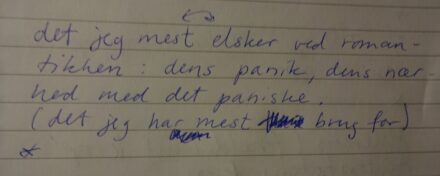 det jeg mest elsker ved roman-
tikken : dens panik, dens nær-
hed med det paniske.
(det jeg har mest brug for)